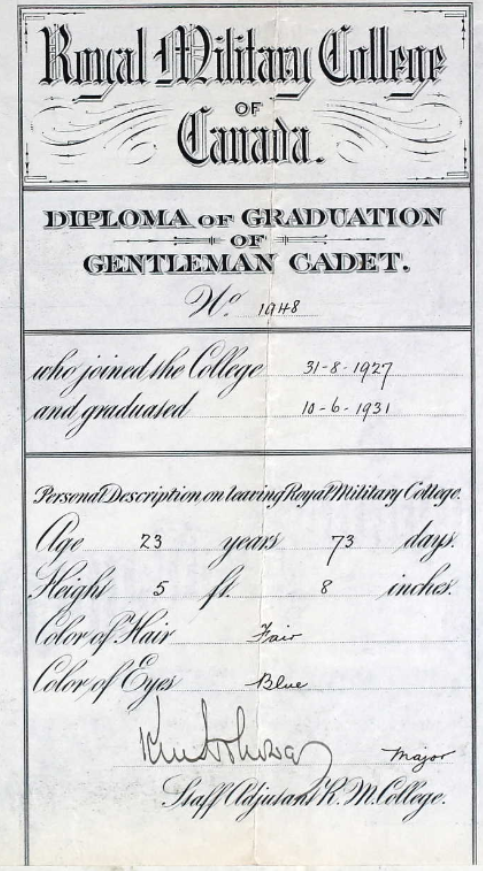 Royal Military College
OF
Canada.
DIPLOMA OF GRADUATION
OF
GENTLEMAN CADET.
No. 1948
who joined the College 31-8-1927
and graduated 10-6-1931
Personal Description on leaving Royal Military College.
Age 23 years 73 days.
Height 5 ft. 8 inches.
Color of Hair Fair
Color of Eyes Blue
Major
Staff Adjutant R. M. College.